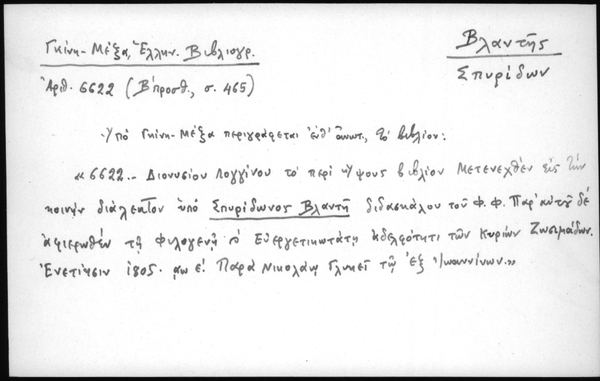 Γκίνη-Μέξα, Ἑλλην. Βιβλιογρ.
Βλαντῆς
Σπυρίδων
Ἀριθ. 6622 (Β΄προσθ., σ. 465)
Ὑπό Γκίνη-Μέξα περιγράφεται ἐνθ' ἀνωτ., τό βιβλίον:
«6622.- Διονυσίου Λογγίνου τό περί ὕψους βιβλίον Μετενεχθέν εἰς τήν
κοινήν διάλεκτον ὑπό Σπυρίδωνος Βλαντῆ διδασκάλου τοῦ Φ. Φ. Παρ' αὐτοῦ δέ
ἀφιερωθέν τῇ φιλογενῇ Εὐεργετικωτάτῃ ἀδελφότητι τῶν Κυρίων Ζωσιμάδων.
Ἐνετίησιν 1805. Παρά Νικολάῳ Γλυκεῖ τῷ ἐξ Ἰωαννίνων.»